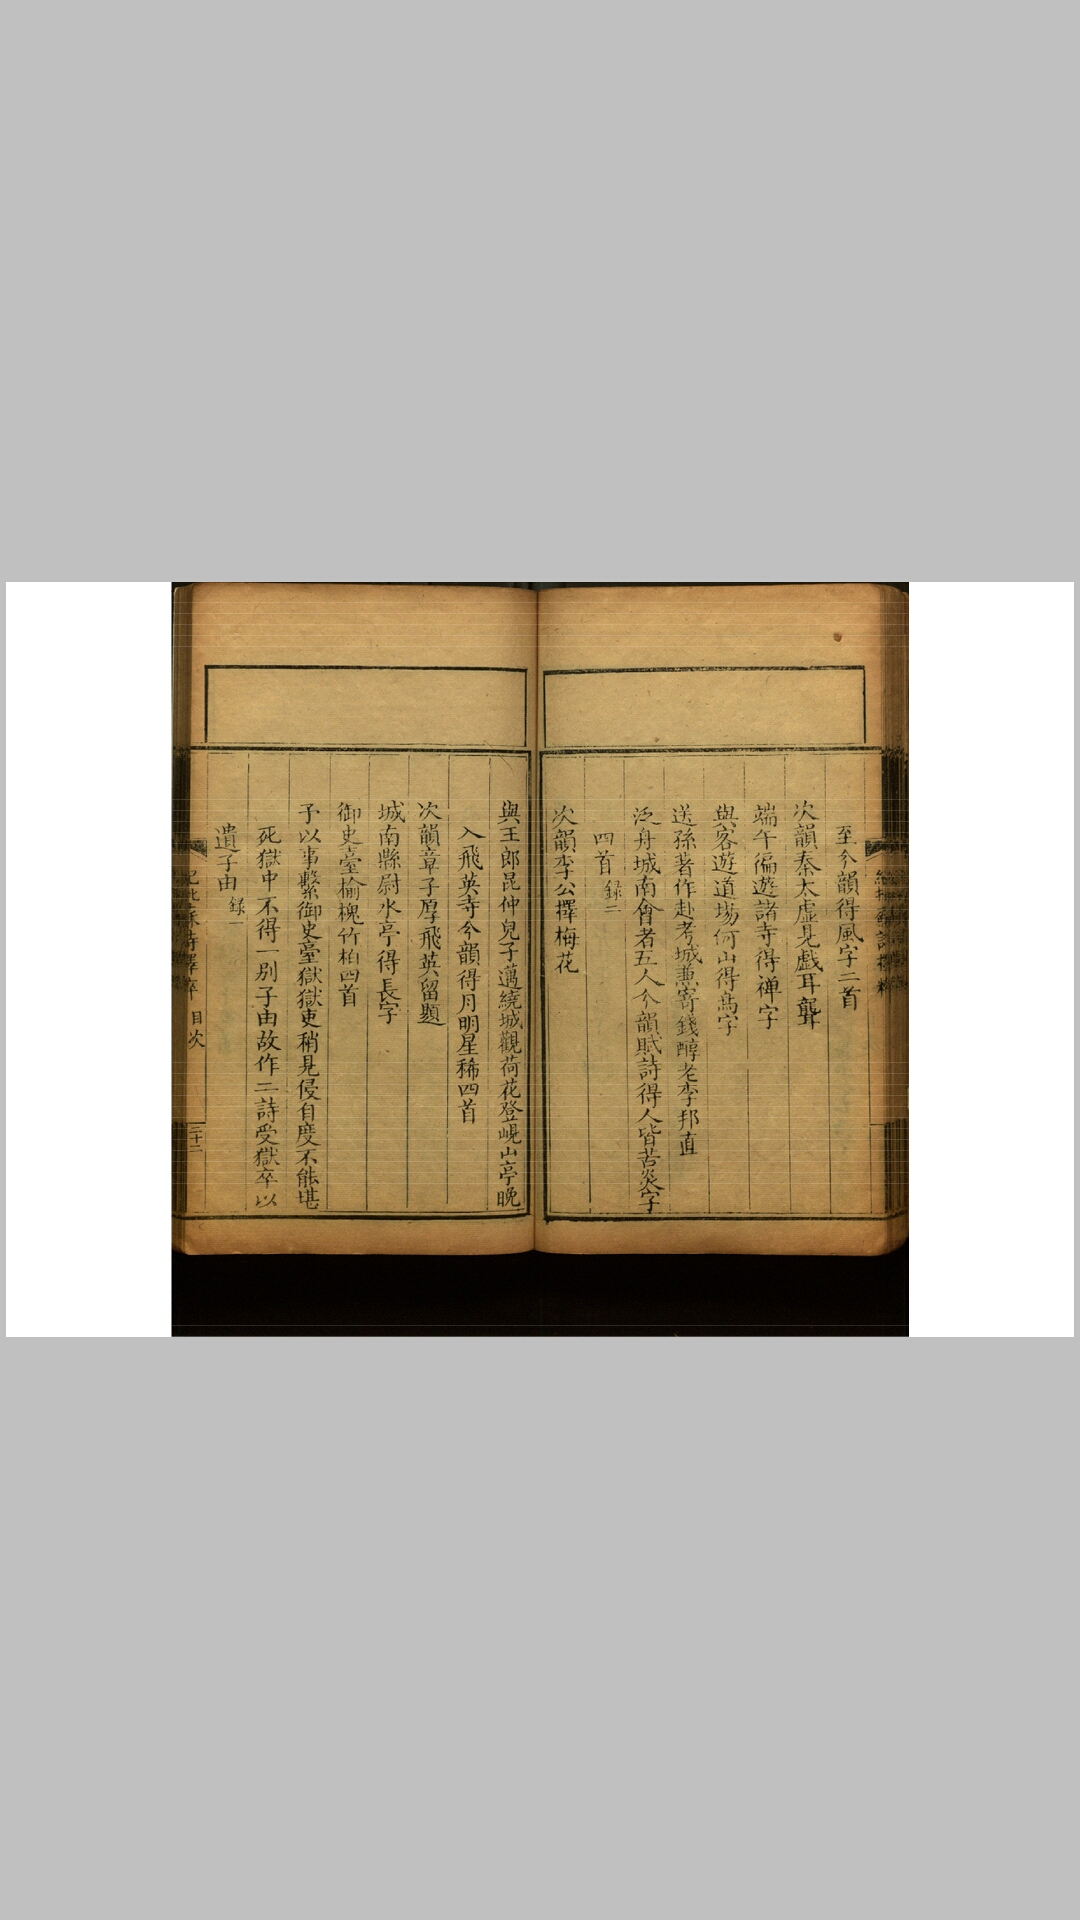 至今韻得風字二首
次韻秦太虛見戲耳聾
端午徧遊諸寺得禅字
與客遊道場何山得鳥字
送孫著作赴考城蕙寄錢醇老李邦直
泛舟城南會者五人分韻賦詩得人皆苦炎字
四首 録二
次韻李公擇梅花
與王郎昆仲兒子邁繞城觀荷花登峴山亭晚
入飛英寺今韻得月明星稀四首
次韻章子厚飛英留題
城南縣尉水亭得長字
御史臺榆槐竹柏四首
予以事繫御史臺獄獄吏稍見侵自度不能堪
死獄中不得一別子由故作二詩受獄卒以
遺子由 録一
目次
三十二